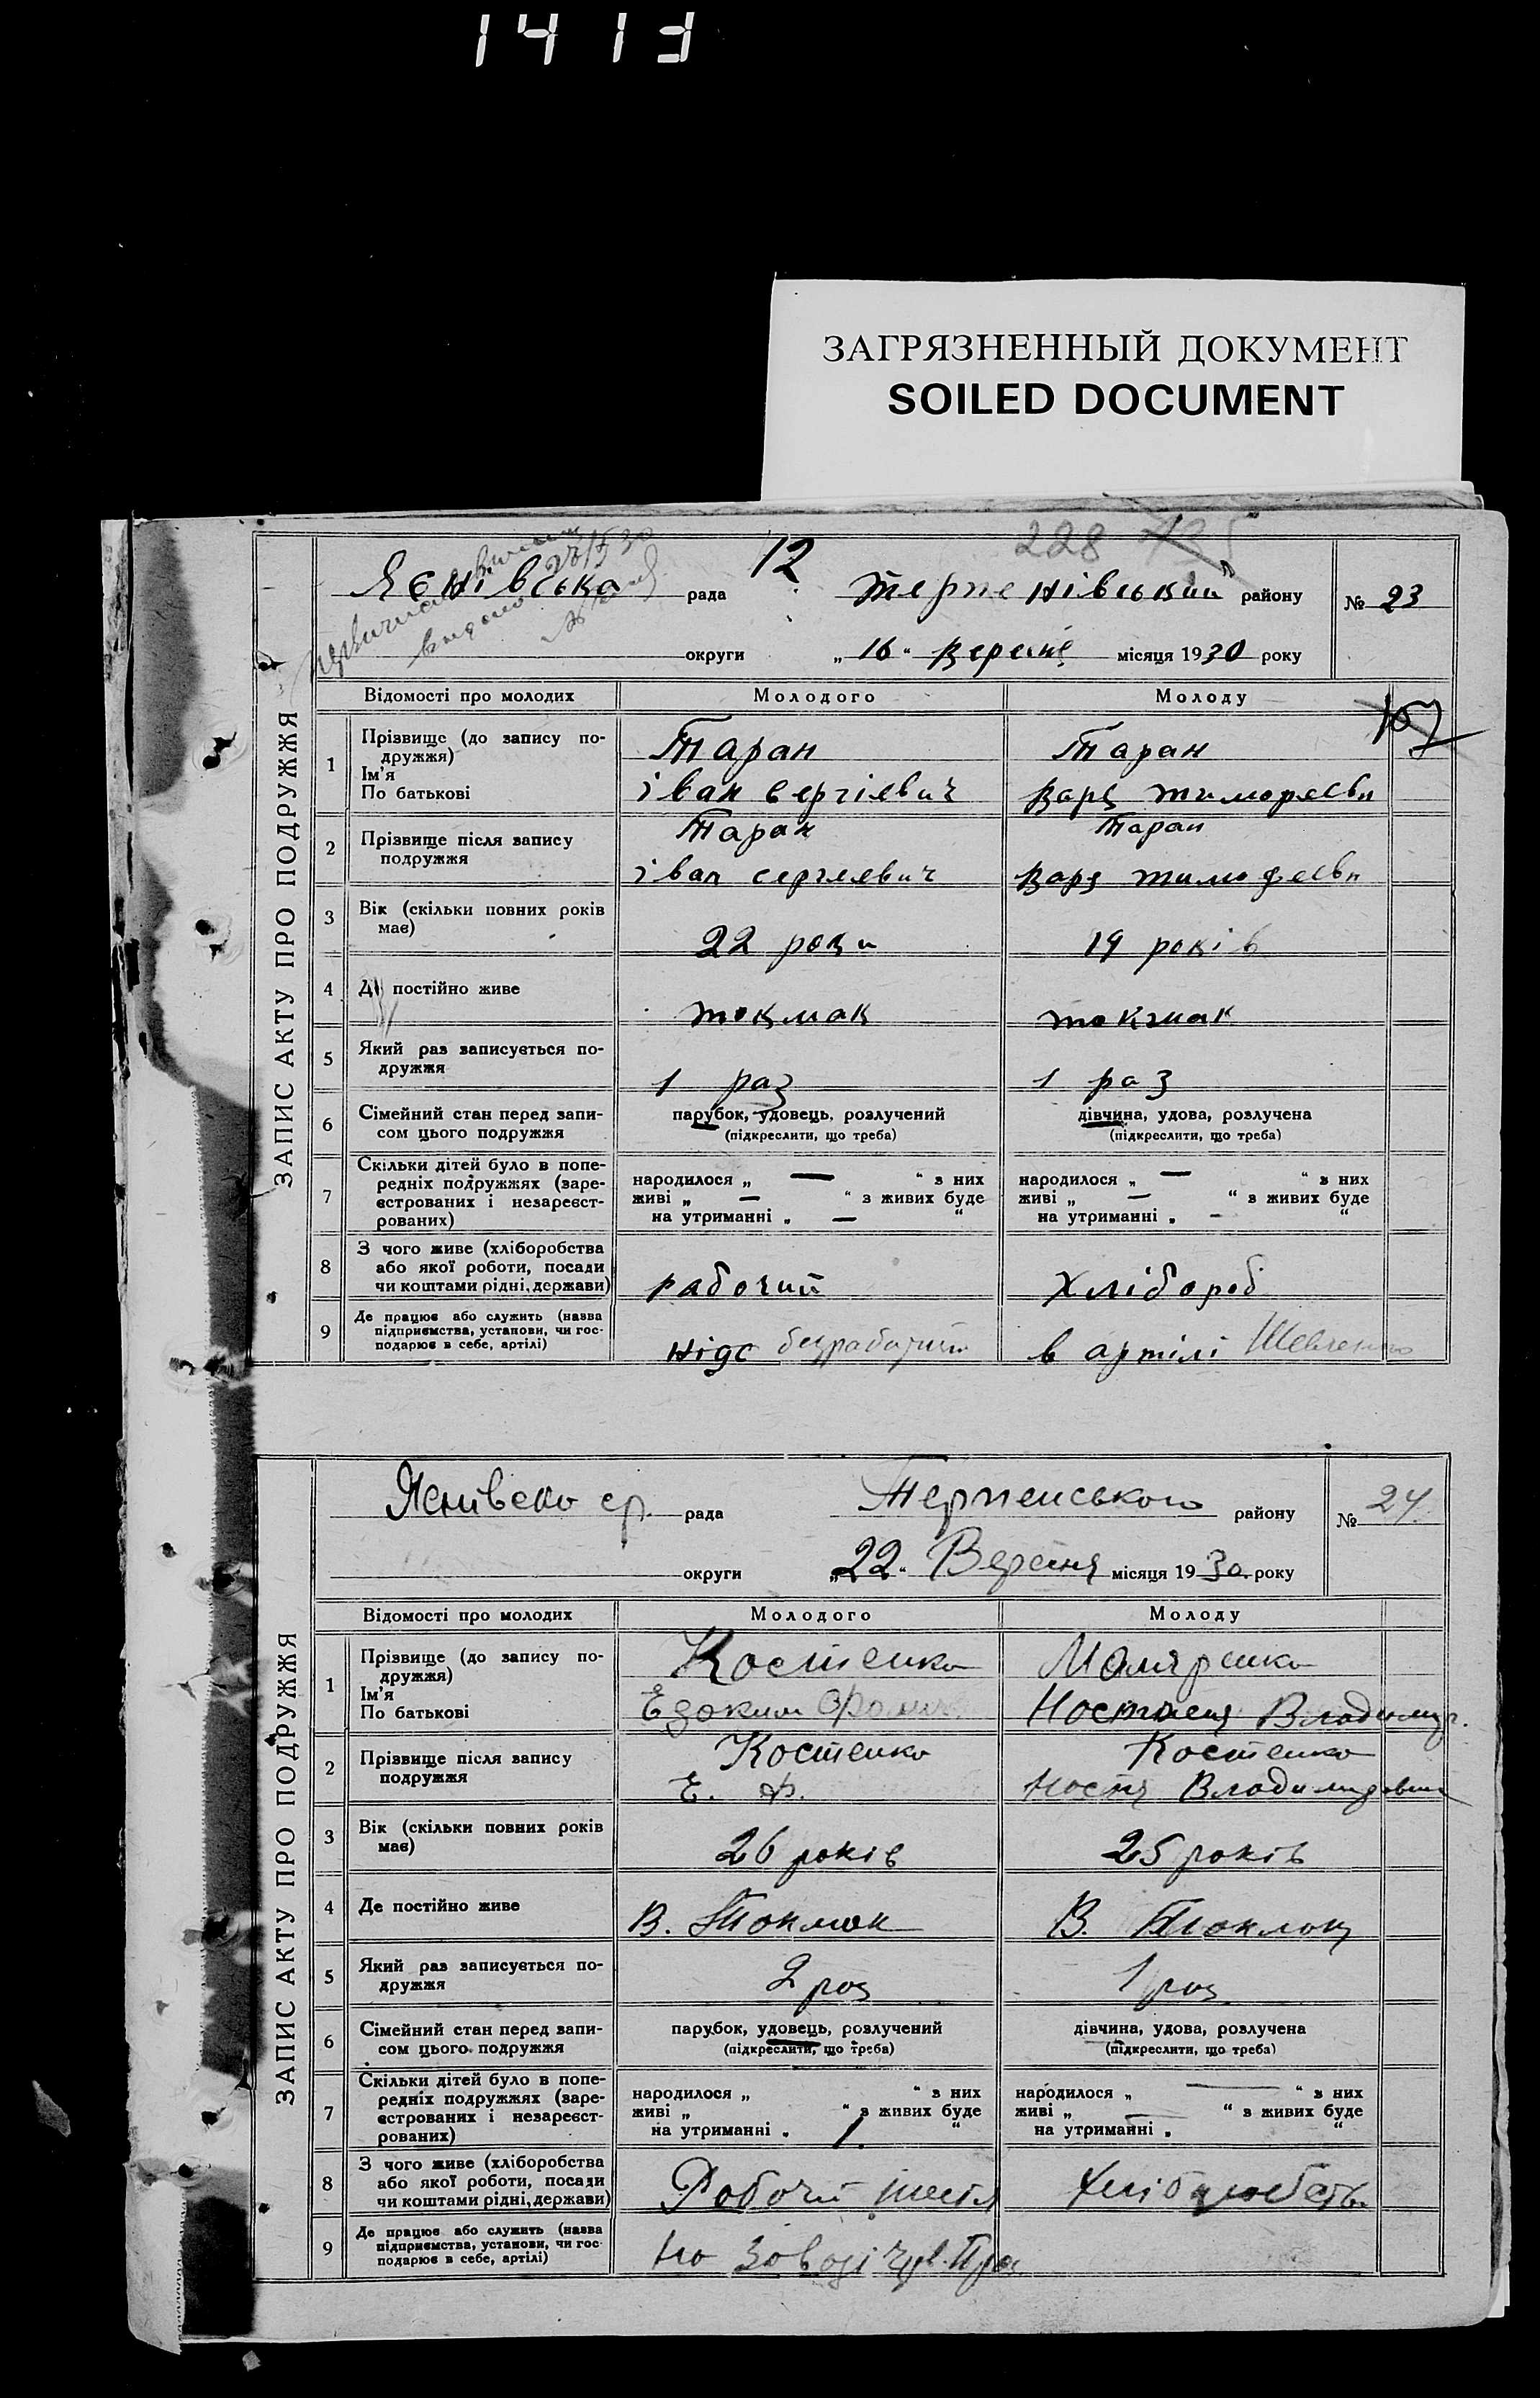 1413
ЗАГРЯЗНЕННЫЙ ДОКУМЕНТ
SOILED DOCUMENT
228
12
Яснівська рада район у № 23
округи „16“ Вересня місяця 1930 року
ЗАПИС АКТУ ПРО ПОДРУЖЖЯ
Відомості про молодих Молодого Молоду
107
1 Прізвище (до запису по-
дружжя) Таран Таран
Ім'я
По батькові іван Сергієвич Варя
2 Прізвище після запису Таран Таран
подружжя іван сергиевич Варя тимофеевн
3 Вік (скільки повних років
має) 22 роки 19 років
4 Де постійно живе токмак токмак
5 Який раз записується по-
дружжя 1 раз 1 раз
6 Сімейний стан перед запи- парубок, удовець, розлучений дівчина, удова, розлучена
сом цього подружжя (підкреслити, що треба) (підкреслити, що треба)
7 Скільки дітей було в попе-
редніх подружжях (заре- народилося „ — “ з них народилося „ — “ з них
єстрованих і незареєст- живі „ — “ з живих буде живі „ — “ з живих буде
рованих) на утриманні „ — “ на утриманні „ - “
8 З чого живе (хліборобства
або якої роботи, посади
чи коштами рідні, держави) рабочий хлібороб
9 Де працює або служить (назва
підприємства, установи, чи гос-
подарює в себе, артілі) нідє безработний в артілі Шевченко
Яснівська ср. рада Терпенського району № 24
округи „22“ Вересня місяця 1930 року
ЗАПИС АКТУ ПРО ПОДРУЖЖЯ
Відомості про молодих Молодого Молоду
1 Прізвище (до запису по-
дружжя) Костенко Моляренко
Ім'я
По батькові Владимир.
2 Прізвище після запису Костенко Костенко
подружжя Е. Ф. Настя Владимировна
3 Вік (скільки повних років
має) 26 років 25 років
4 Де постійно живе В. Токмак В. Токмак
5 Який раз записується по-
дружжя 2 раз 1 раз
6 Сімейний стан перед запи- парубок, удовець, розлучений дівчина, удова, розлучена
сом цього подружжя (підкреслити, що треба) (підкреслити, що треба)
7 Скільки дітей було в попе-
редніх подружжях (заре- народилося „ “ з них народилося „ — “ з них
єстрованих і незареєст- живі „ “ з живих буде живі „ — “ з живих буде
рованих) на утриманні „ 1 “ на утриманні „ “
8 З чого живе (хліборобства
або якої роботи, посади
чи коштами рідні, держави) Робочий
9 Де працює або служить (назва
підприємства, установи, чи гос-
подарює в себе, артілі) На заводі